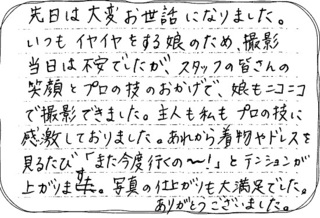 先日は大変お世話になりました。
いつもイヤイヤをする娘のため、撮影
当日は不安でしたが、スタッフの皆さんの
笑顔とプロの技のおかげで、娘もニコニコ
で撮影できました。主人も私もプロの技に
感激しておりました。あれから着物やドレスを
見るたび「また今度行くの〜!」とテンションが
上がります。写真の仕上がりも大満足でした。
ありがとうございました。